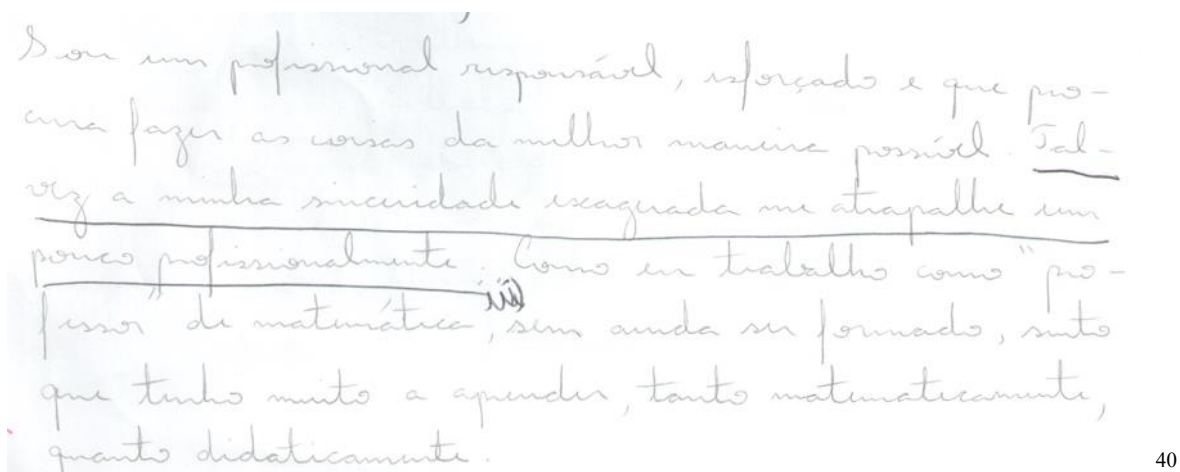 Sou um profissional responsável, esforçado e que pro-
cura fazer as coisas da melhor maneira possível. Tal-
vez a minha sinceridade exagerada me atrapalhe um
pouco profissionalmente. Como eu trabalho como "pro-
fessor" de matemática, sem ainda ser formado, sinto
que tenho muito a aprender, tanto matematicamente,
quanto didaticamente.
40